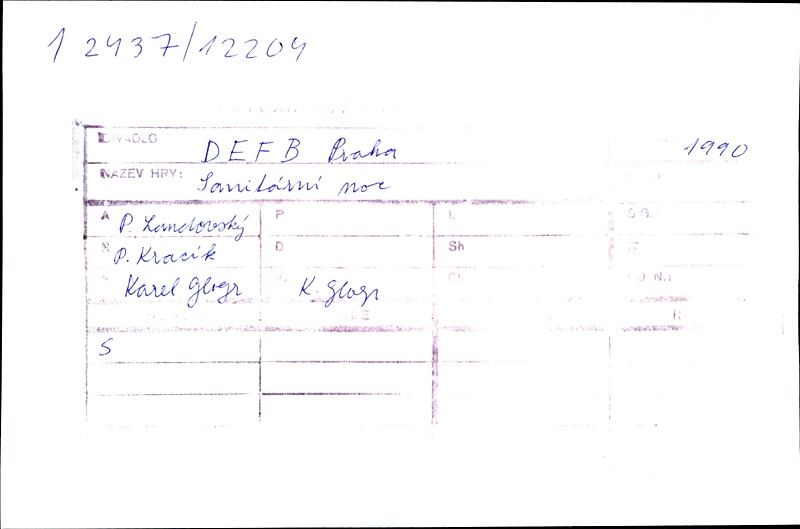 1 2437/12204
DIVADLO DEFB Praha 1990
NÁZEV HRY: Sanitární noc
A P. Landovský P L
R P. Kracik D Sh
Karel Glogr K. Glogr
S